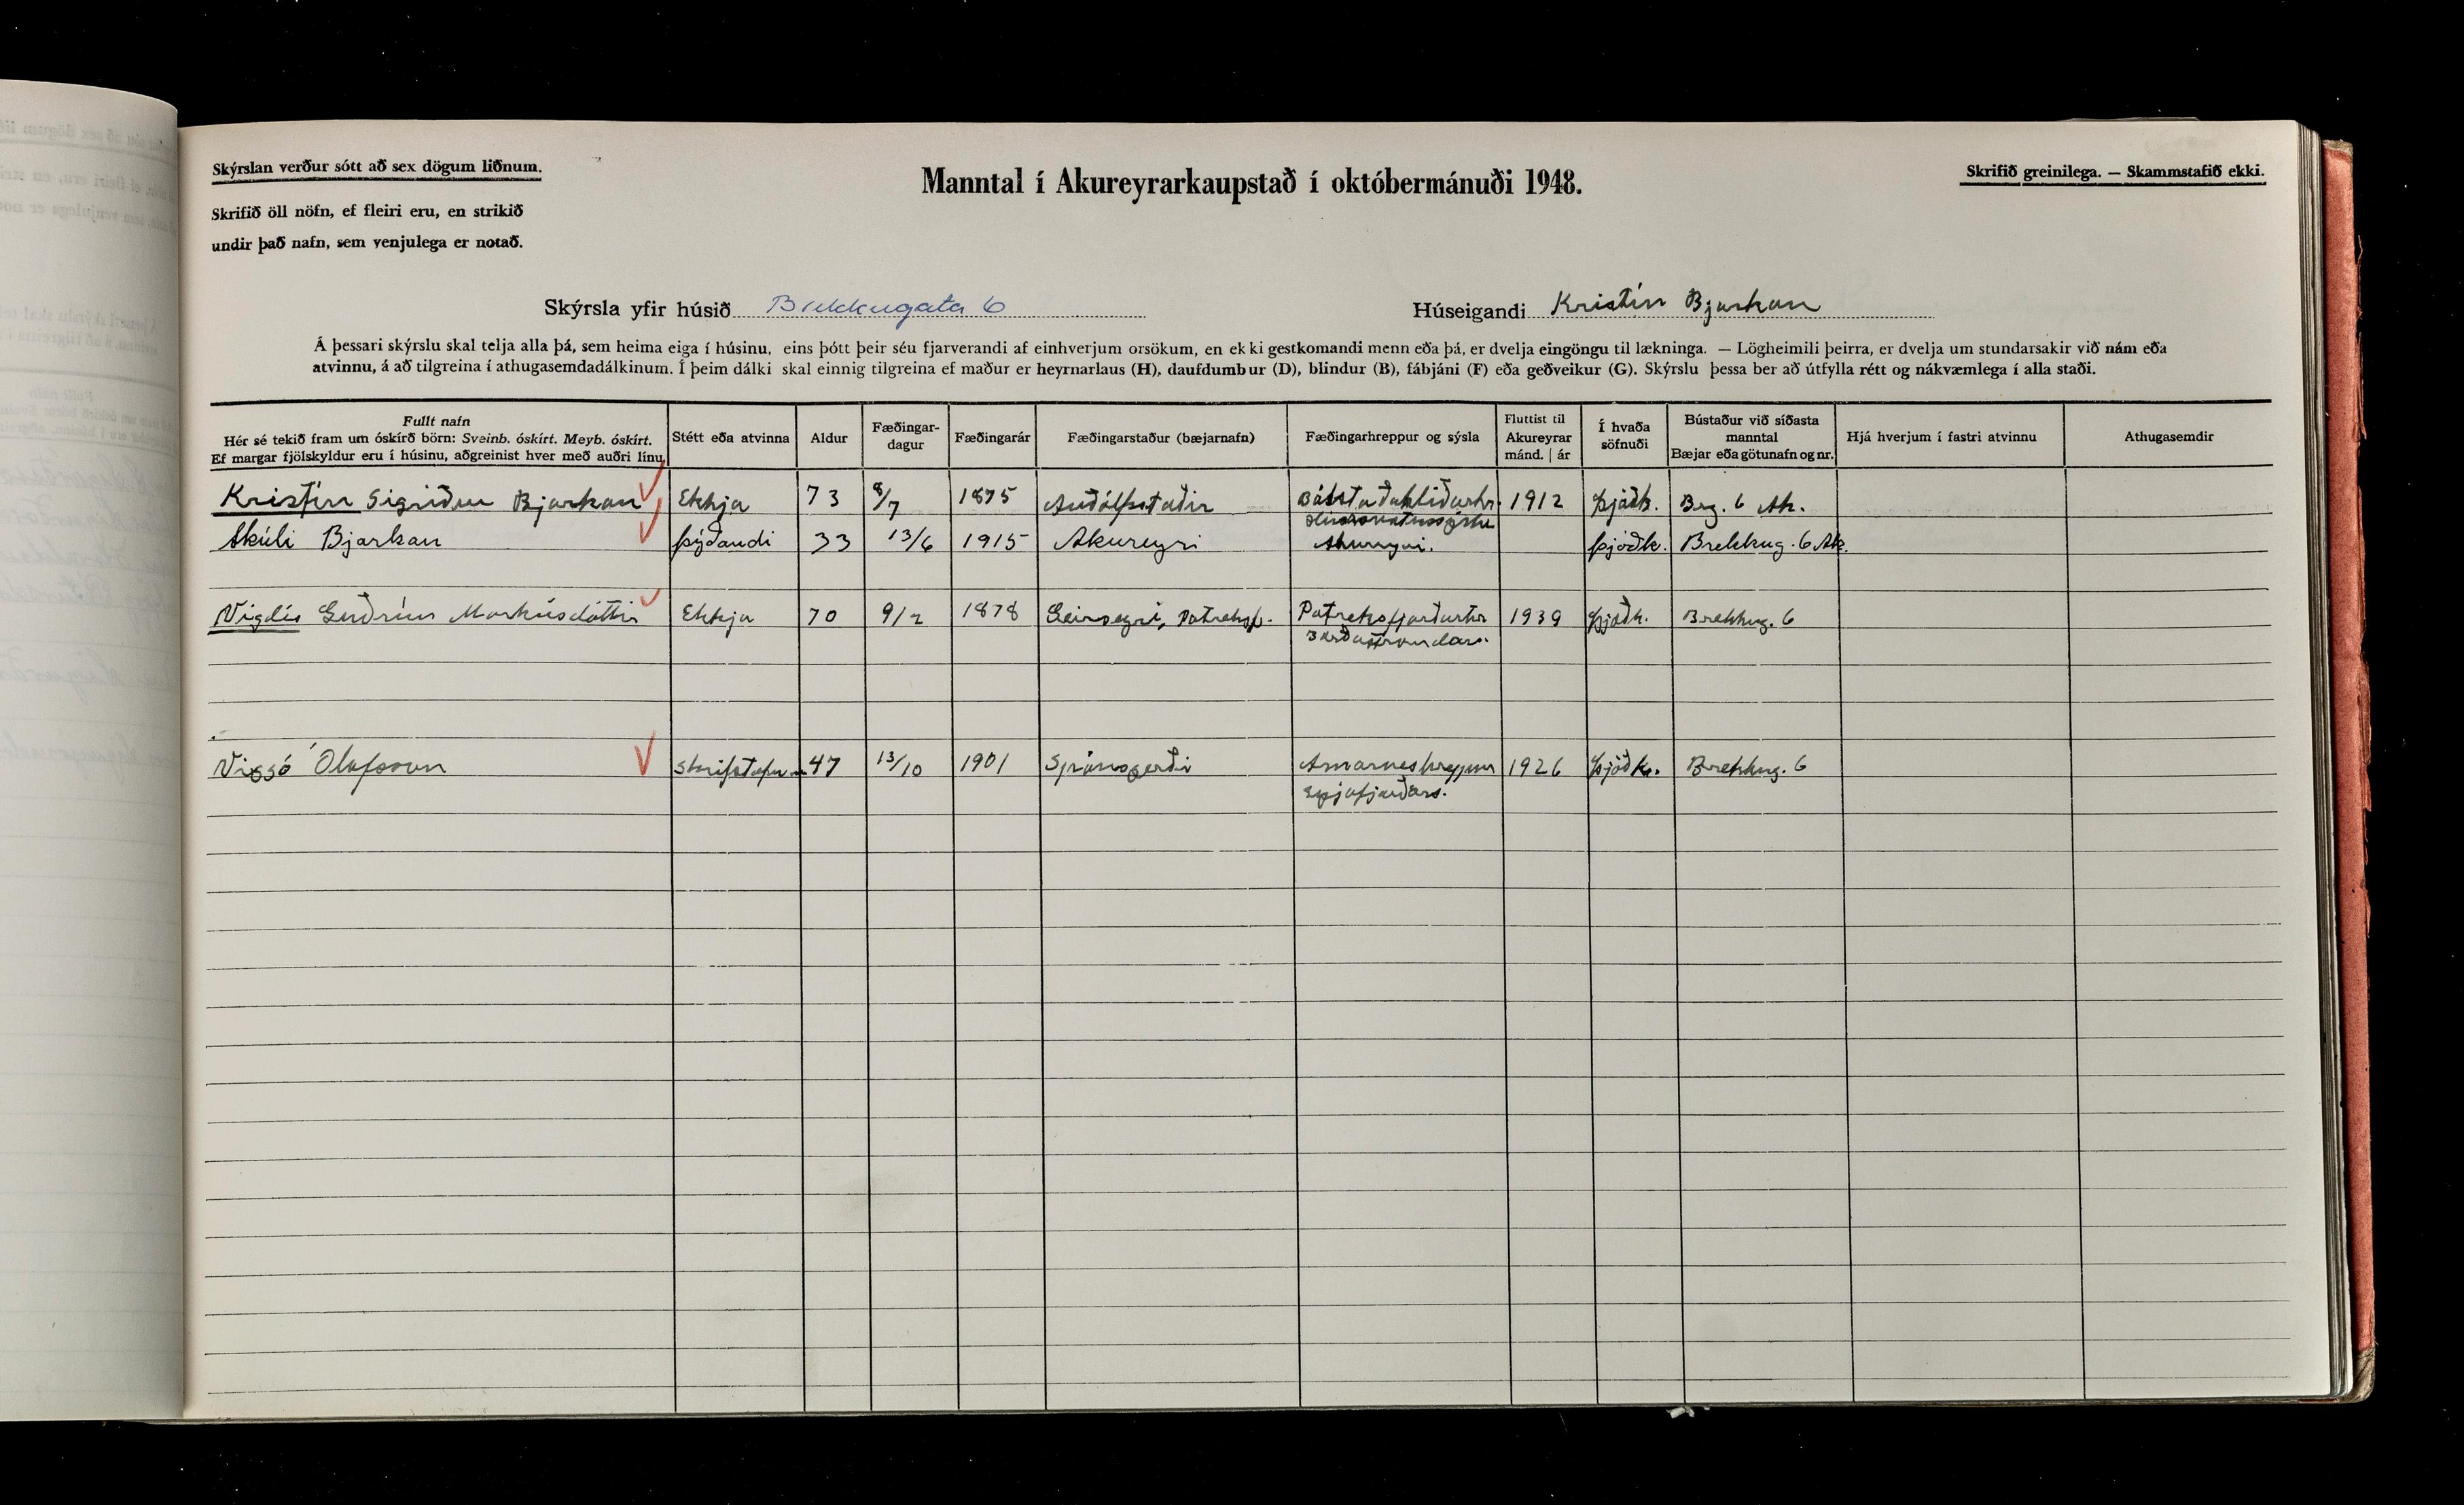 Skýrslan verður sótt að sex dögum liðnum.
Skrifið öll nöfn, ef fleiri eru, en strikið
undir það nafn, sem venjulega er notað.
Manntal í Akureyrarkaupstað í októbermánuði 1948.
Skrifið greinilega. — Skammstafið ekki.
Skýrsla yfir húsið Brekkugata 6
Húseigandi Kristín Bjarkan
Á þessari skýrslu skal telja alla þá, sem heima eiga í húsinu, eins þótt þeir séu fjarverandi af einhverjum orsökum, en ekki gestkomandi menn eða þá, er dvelja eingöngu til lækninga. — Lögheimili þeirra, er dvelja um stundarsakir við nám eða
atvinnu, á að tilgreina í athugasemdadálkinum. Í þeim dálki skal einnig tilgreina ef maður er heyrnarlaus (H), daufdumbur (D), blindur (B), fábjáni (F) eða geðveikur (G). Skýrslu þessa ber að útfylla rétt og nákvæmlega í alla staði.
Fullt nafn
Hér sé tekið fram um óskírð börn: Sveinb. óskírt. Meyb. óskírt.
Ef margar fjölskyldur eru í húsinu, aðgreinist hver með auðri línu.
Stétt eða atvinna
Aldur
Fæðingar-
dagur
Fæðingarár
Fæðingarstaður (bæjarnafn)
Fæðingarhreppur og sýsla
Fluttist til
Akureyrar
mánd. | ár
Í hvaða
söfnuði
Bústaður við síðasta
manntal
Bæjar eða götunafn og nr.
Hjá hverjum í fastri atvinnu
Athugasemdir
Kristín Sigríður Bjarkan Ekkja 73 8/7 1875 Auðólfsstaðir Bólstaðahlíðarhr. 1912 Þjóðk. Brg. 6 Ak.
Húnavatnssýslu
Skúli Bjarkan þýðandi 33 13/6 1915 Akureyri Akureyri. Þjóðk. Brekkug. 6 Ak.
Vigdís Guðrún Markúsdóttir Ekkja 70 9/2 1878 Geirseyri, Patreksf. Patreksfjarðarhr 1939 Þjóðk. Brekkug. 6
Barðastrandars.
Viggó Ólafsson Skrifstofum. 47 13/10 1901 Spónsgerði Arnarneshreppur 1926 Þjóðk. Brekkug. 6
Eyjafjarðars.